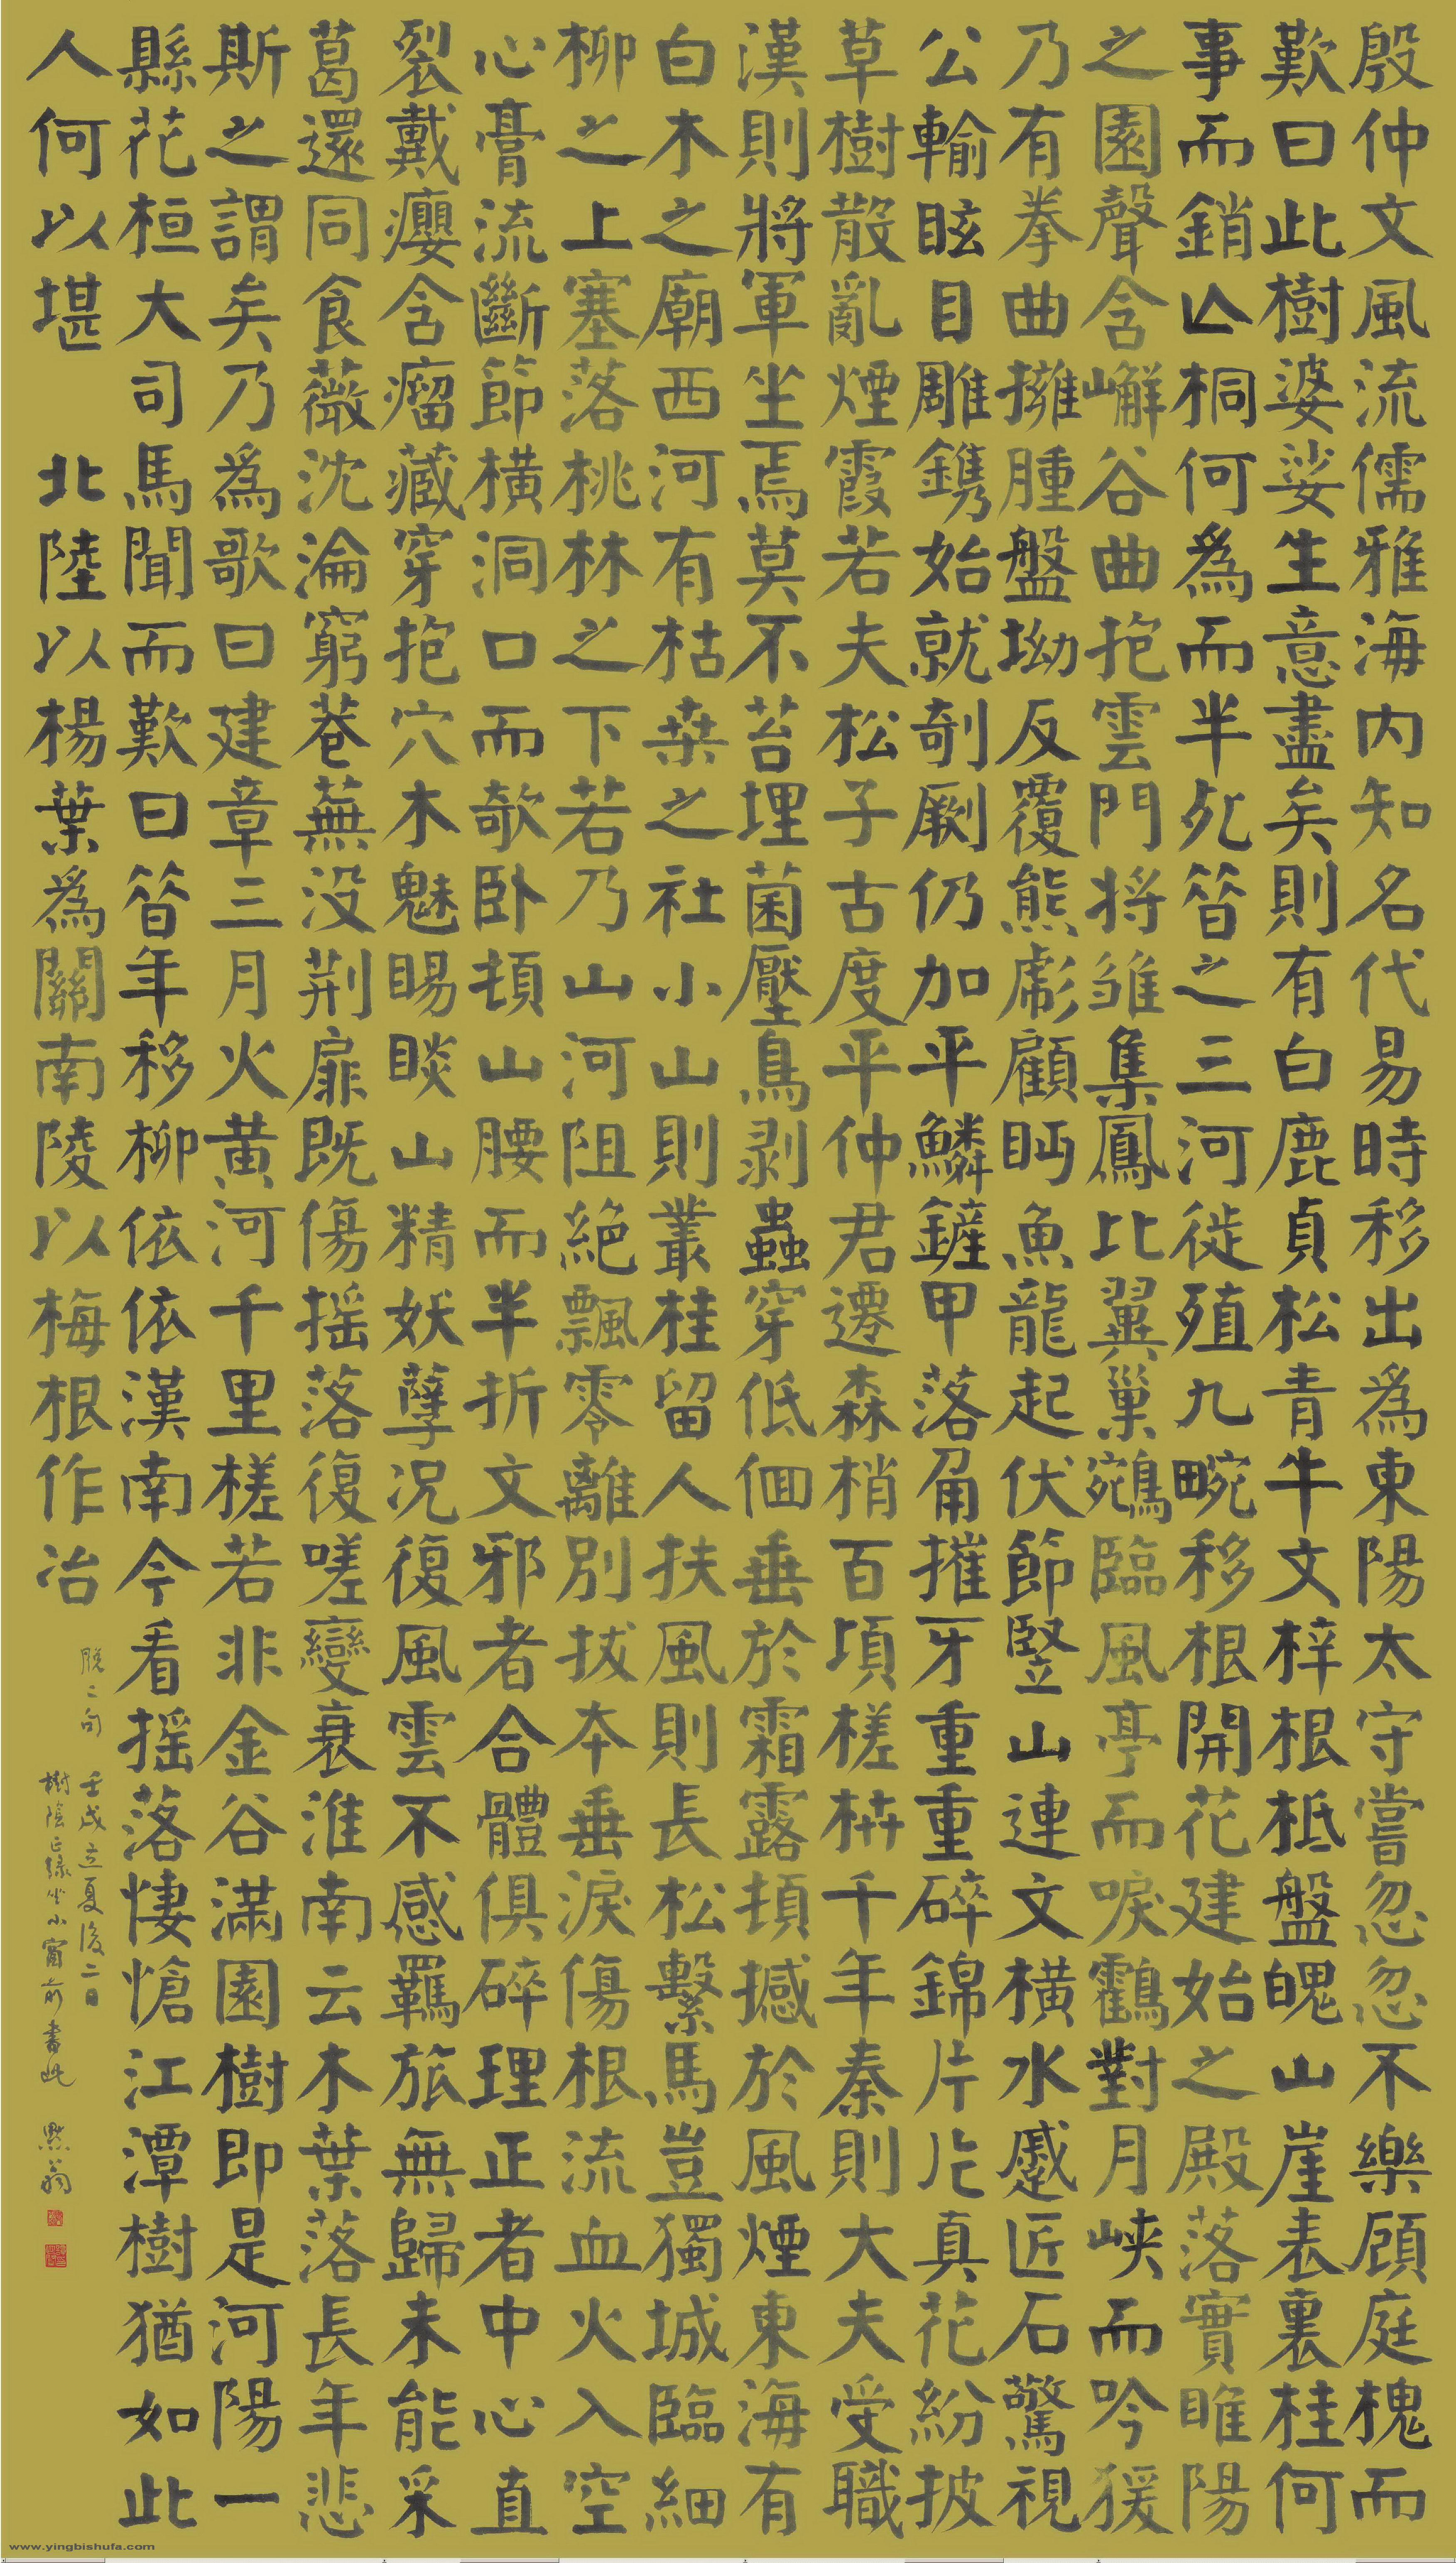 殷仲文風流儒雅海内知名代易時移出為東陽太守嘗忽忽不樂顧庭槐而
歎曰此樹婆娑生意盡矣則有白鹿貞松青牛文梓根柢盤魄山崖表裏桂何
事而銷亾桐何為而半死昝之三河徙殖九畹移根開花建始之殿落實睢陽
之園聲含嶰谷曲抱雲門将雏集鳳比翼巢鵷臨風亭而唳鶴對月峽而吟猨
乃有拳曲擁腫盤坳反覆熊彪顧眄魚龍起伏節竪山連文橫水蹙匠石驚視
公輸眩目雕鐫始就剞劂仍加平鱗鏟甲落角摧牙重重碎錦片片真花紛披
草樹散亂煙霞若夫松子古度平仲君遷森梢百頃槎枿千年秦則大夫受職
漢則將軍坐焉莫不苔埋菌壓鳥剥蟲穿低佪垂於霜露頓撼於風煙東海有
白木之廟西河有枯桒之社小山則叢桂留人扶風則長松繫馬豈獨城臨細
柳之上塞落桃林之下若乃山河阻絕飄零離別拔本垂淚傷根流血火入空
心膏流斷節橫洞口而欹卧頓山腰而半折文邪者合體俱碎理正者中心直
裂戴癭含瘤藏穿抱穴木魅賜睒山精妖孽况復風雲不感羈旅無歸未能采
葛還同食薇沈淪窮巷蕪没荆扉既傷摇落復嗟變衰淮南云木葉落長年悲
斯之謂矣乃為歌曰建章三月火黄河千里槎若非金谷滿園樹即是河陽一
縣花桓大司馬聞而歎曰昝年移柳依依漢南今看摇落悽愴江潭樹猶如此
人何以堪 北陸以楊葉為關南陵以梅根作冶
脱二句
壬戌立夏後二日
樹陰正緑坐小窗前書此 默翁
www.yingbishufa.com